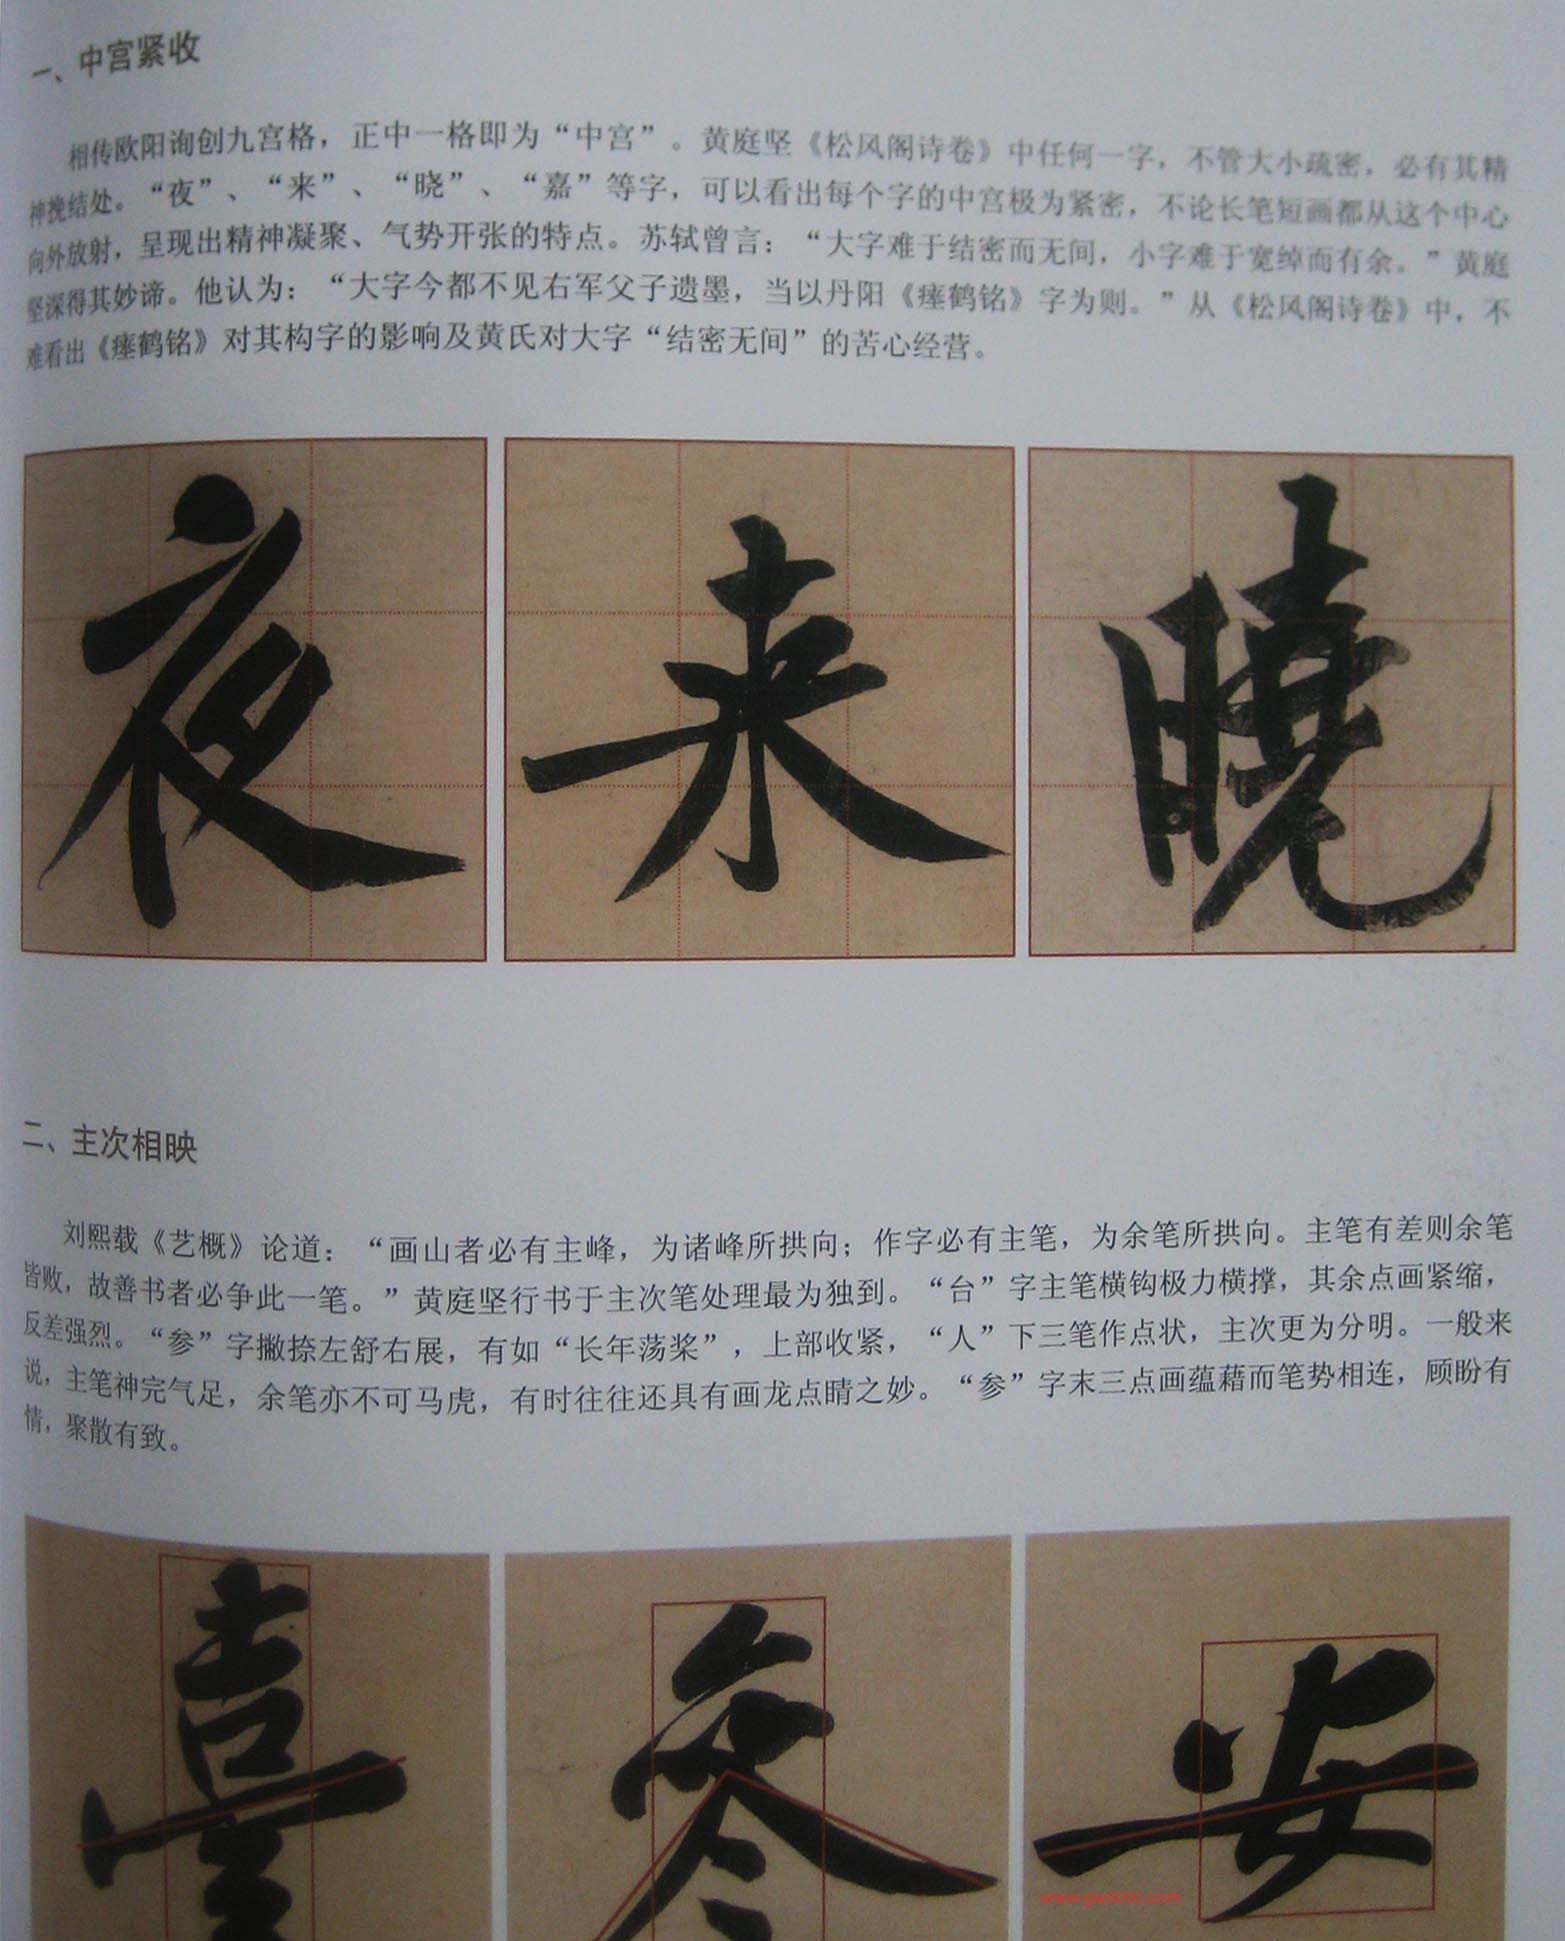 一、中宫紧收
相传欧阳询创九宫格，正中一格即为“中宫”。黄庭坚《松风阁诗卷》中任何一字，不管大小疏密，必有其精
神挽结处。“夜”、“来”、“晓”、“嘉”等字，可以看出每个字的中宫极为紧密，不论长笔短画都从这个中心
向外放射，呈现出精神凝聚、气势开张的特点。苏轼曾言：“大字难于结密而无间，小字难于宽绰而有余。”黄庭
坚深得其妙谛。他认为：“大字今都不见右军父子遗墨，当以丹阳《瘗鹤铭》字为则。”从《松风阁诗卷》中，不
难看出《瘗鹤铭》对其构字的影响及黄氏对大字“结密无间”的苦心经营。
夜 来 曉
二、主次相映
刘熙载《艺概》论道：“画山者必有主峰，为诸峰所拱向；作字必有主笔，为余笔所拱向。主笔有差则余笔
皆败，故善书者必争此一笔。”黄庭坚行书于主次笔处理最为独到。“台”字主笔横钩极力横撑，其余点画紧缩，
反差强烈。“参”字撇捺左舒右展，有如“长年荡桨”，上部收紧，“人”下三笔作点状，主次更为分明。一般来
说，主笔神完气足，余笔亦不可马虎，有时往往还具有画龙点睛之妙。“参”字末三点画蕴藉而笔势相连，顾盼有
情，聚散有致。
臺 参 安